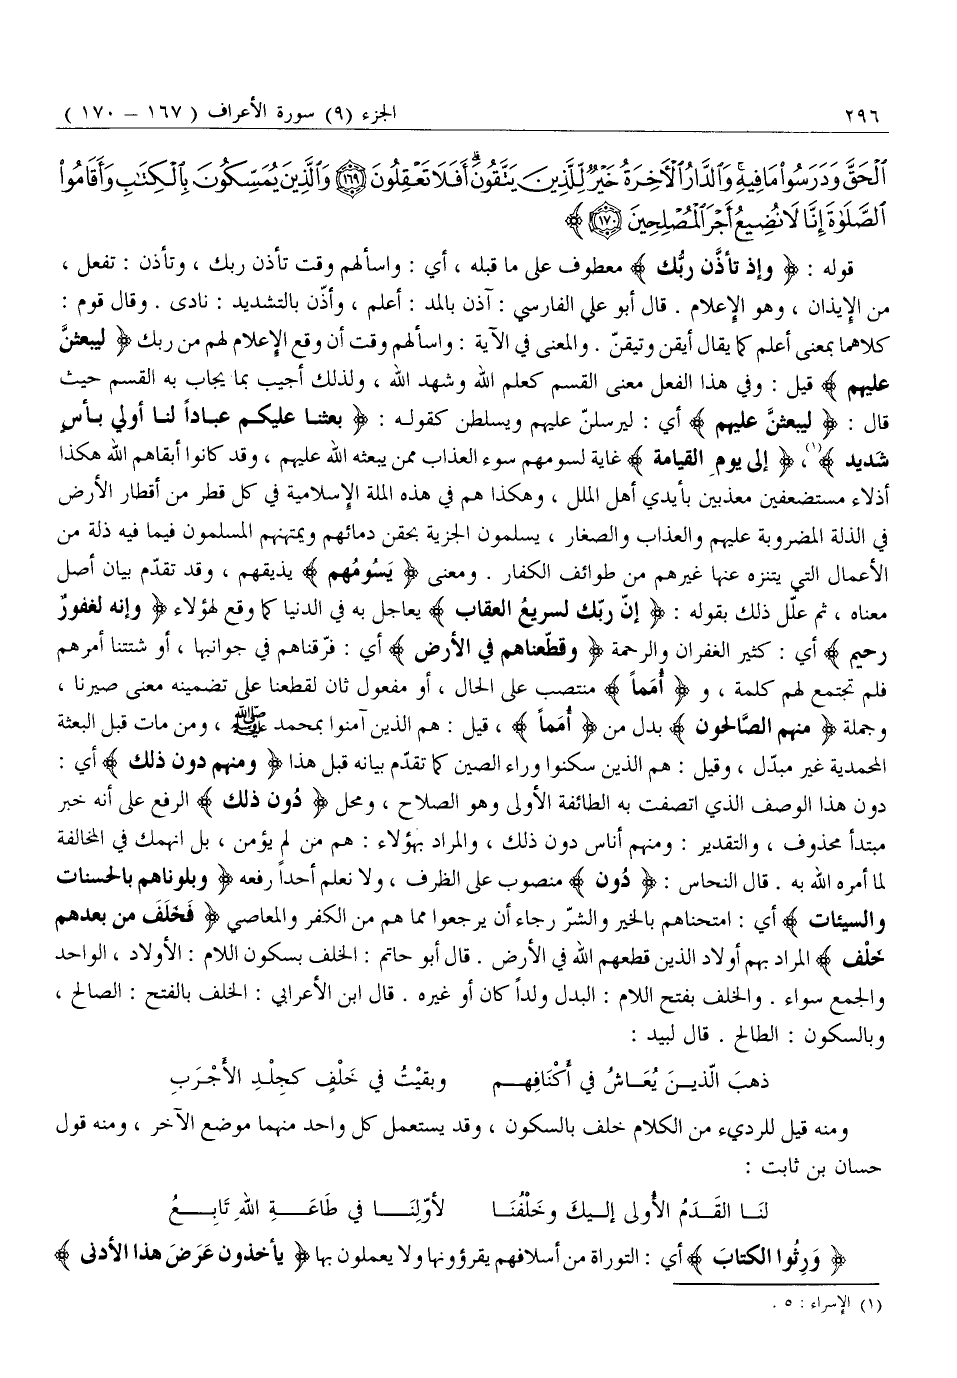 ٢٩٦ الجزء (٩) سورة الأعراف ( ١٦٧ – ١٧٠ )
ٱلْحَقَّ وَدَرَسُوا۟ مَا فِيهِ ۗ وَٱلدَّارُ ٱلْءَاخِرَةُ خَيْرٌ لِّلَّذِينَ يَتَّقُونَ ۗ أَفَلَا تَعْقِلُونَ ﴿١٦٩﴾ وَٱلَّذِينَ يُمَسِّكُونَ بِٱلْكِتَٰبِ وَأَقَامُوا۟
ٱلصَّلَوٰةَ إِنَّا لَا نُضِيعُ أَجْرَ ٱلْمُصْلِحِينَ ﴿١٧٠﴾ ﴾
قوله : ﴿ وإذ تأذَّن ربُّك ﴾ معطوف على ما قبله ، أي : واسألهم وقت تأذن ربك ، وتأذن : تفعل ،
من الإيذان ، وهو الإعلام . قال أبو علي الفارسي : آذن بالمد : أعلم ، وأذّن بالتشديد : نادى . وقال قوم :
كلاهما بمعنى أعلم كما يقال أيقن وتيقنّ . والمعنى في الآية : واسألهم وقت أن وقع الإعلام لهم من ربك ﴿ ليبعثنَّ
عليهم ﴾ قيل : وفي هذا الفعل معنى القسم كعلم الله وشهد الله ، ولذلك أجيب بما يجاب به القسم حيث
قال : ﴿ ليبعثنَّ عليهم ﴾ أي : ليرسلنّ عليهم ويسلطن كقوله : ﴿ بعثنا عليكم عباداً لنا أولي بأسٍ
شديد ﴾(١)، ﴿ إلى يومِ القيامة ﴾ غاية لسومهم سوء العذاب ممن يبعثه الله عليهم ، وقد كانوا أبقاهم الله هكذا
أذلاء مستضعفين معذبين بأيدي أهل الملل ، وهكذا هم في هذه الملة الإسلامية في كل قطر من أقطار الأرض
في الذلة المضروبة عليهم والعذاب والصغار ، يسلمون الجزية بحقن دمائهم ويمتهنهم المسلمون فيما فيه ذلة من
الأعمال التي يتنزه عنها غيرهم من طوائف الكفار . ومعنى ﴿ يَسُومُهم ﴾ يذيقهم ، وقد تقدّم بيان أصل
معناه ، ثم علّل ذلك بقوله : ﴿ إنّ ربّك لسريعُ العقاب ﴾ يعاجل به في الدنيا كما وقع لهؤلاء ﴿ وإنه لغفورٌ
رحيم ﴾ أي : كثير الغفران والرحمة ﴿ وقطّعناهم في الأرض ﴾ أي : فرّقناهم في جوانبها ، أو شتتنا أمرهم
فلم تجتمع لهم كلمة ، و ﴿ أُمَماً ﴾ منتصب على الحال ، أو مفعول ثان لقطعنا على تضمينه معنى صيرنا ،
وجملة ﴿ منهم الصَّالحون ﴾ بدل من ﴿ أُمَماً ﴾ ، قيل : هم الذين آمنوا بمحمد ﷺ ، ومن مات قبل البعثة
المحمدية غير مبدّل ، وقيل : هم الذين سكنوا وراء الصين كما تقدّم بيانه قبل هذا ﴿ ومنهم دون ذلك ﴾ أي :
دون هذا الوصف الذي اتصفت به الطائفة الأولى وهو الصلاح ، ومحل ﴿ دُون ذلك ﴾ الرفع على أنه خبر
مبتدأ محذوف ، والتقدير : ومنهم أناس دون ذلك ، والمراد بهؤلاء : هم من لم يؤمن ، بل انهمك في المخالفة
لما أمره الله به . قال النحاس : ﴿ دُون ﴾ منصوب على الظرف ، ولا نعلم أحداً رفعه ﴿ وبلوناهم بالحسنات
والسيئات ﴾ أي : امتحناهم بالخير والشرّ رجاء أن يرجعوا مما هم من الكفر والمعاصي ﴿ فَخَلَفَ من بعدهم
خَلْف ﴾ المراد بهم أولاد الذين قطعهم الله في الأرض . قال أبو حاتم : الخلف بسكون اللام : الأولاد ، الواحد
والجمع سواء . والخلف بفتح اللام : البدل ولداً كان أو غيره . قال ابن الأعرابي : الخلف بالفتح : الصالح ،
وبالسكون : الطالح . قال لبيد :
ذهبَ الّذيـن يُعَـاشُ في أَكْنَافِهِـم وبقيْتُ في خَلْفٍ كجِلْدِ الأَجْرَبِ
ومنه قيل للرديء من الكلام خلف بالسكون ، وقد يستعمل كل واحد منهما موضع الآخر ، ومنه قول
حسان بن ثابت :
لنَـا القَـدَمُ الأُولى إليكَ وخَلْفُنَـا لأوّلِنَـا في طَاعَـةِ اللهِ تَابِـعُ
﴿ وَرِثُوا الكتابَ ﴾ أي : التوراة من أسلافهم يقرؤونها ولا يعملون بها ﴿ يأخذون عَرَضَ هذا الأدنى ﴾
(١) الإسراء : ٥ .